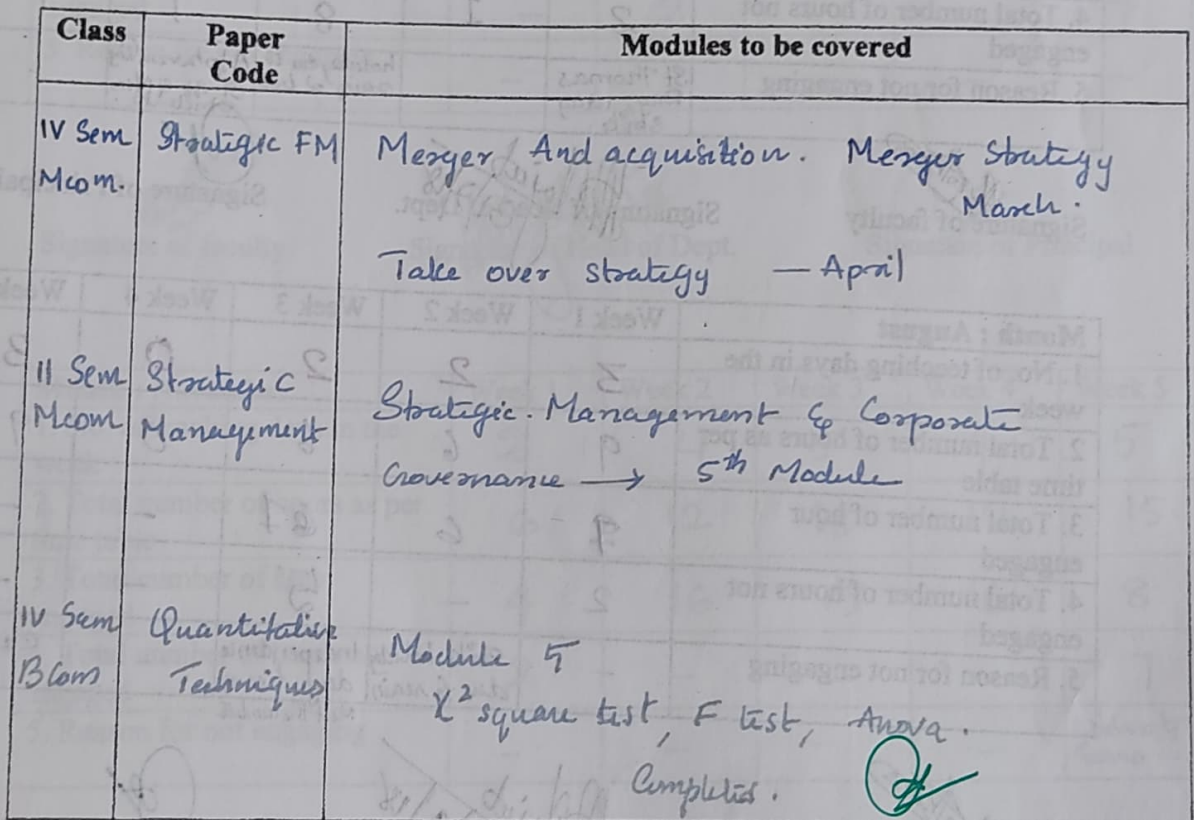 Class Paper Code Modules to be covered
IV Sem Strategic FM Merger And acquisition. Merger Strategy
Mcom. March.
Take over strategy — April
II Sem Strategic
Mcom Management Strategic. Management & Corporate
Governance → 5th Module
IV Sem Quantitative Module 5
BCom Techniques X² square test, F test, Anova.
Completed.